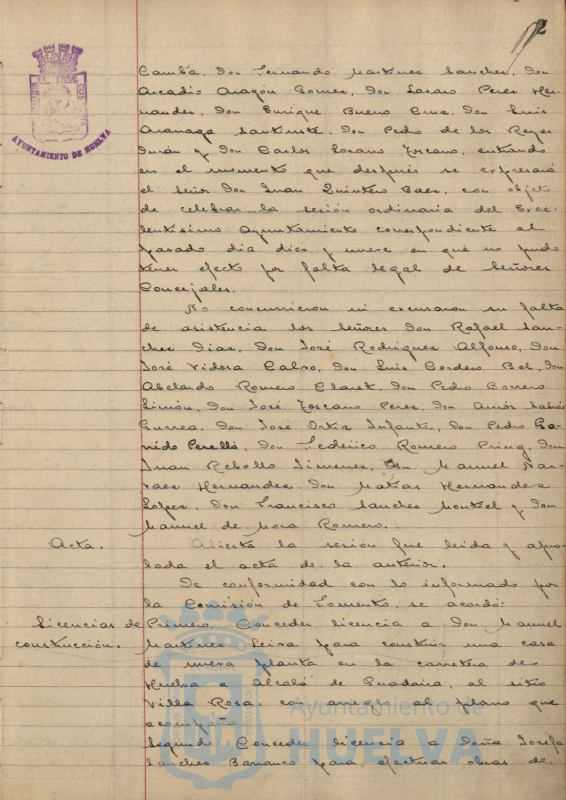 Cambá, Don Fernando Martinez Sanchez, Don
Arcadio Aragón Gomez, Don Lazaro Perez Her-
nandez, Don Enrique Bueno Cruz, Don Luis
Aranaga Santiuste, Don Pedro de los Reyes
Durán y Don Carlos Lozano Toscano, entrando
en el momento que después se expresará
el señor Don Juan Quintero Baez, con objeto
de celebrar la sesión ordinaria del Exce-
lentísimo Ayuntamiento correspondiente al
pasado día diez y nueve en que no pudo
tener efecto por falta legal de Señores
Concejales.
No concurrieron ni excusaron su falta
de asistencia los señores Don Rafael San-
chez Diaz, Don José Rodriguez Alfonso, Don
José Vidosa Calvo, Don Luis Cordero Bel, Don
Abelardo Romero Claret, Don Pedro Borrero
Limón, Don José Toscano Perez, Don Amós Sabrás
Gurrea, Don José Ortiz Infante, Don Pedro Ga-
rrido Perelló, Don Federico Romero Pring, Don
Juan Rebollo Jimenez, Don Manuel Nar-
vaez Hernandez, Don Matias Hernandez
Lopez, Don Francisco Sanchez Montiel y Don
Manuel de Mora Romero.
Acta. Abierta la sesión fue leida y apro-
bada el acta de la anterior.
De conformidad con lo informado por
la Comisión de Fomento, se acordó:
Licencias de Primero. Conceder licencia a Don Manuel
construcción. Martinez Leiva para construir una casa
de nueva planta en la carretera de
Huelva a Alcalá de Guadaira, al sitio
Villa Rosa, con arreglo al plano que
acompaña.
Segundo. Conceder licencia a Doña Josefa
Sanchez Barranco para efectuar obras de
AYUNTAMIENTO DE HUELVA
Ayuntamiento de
HUELVA